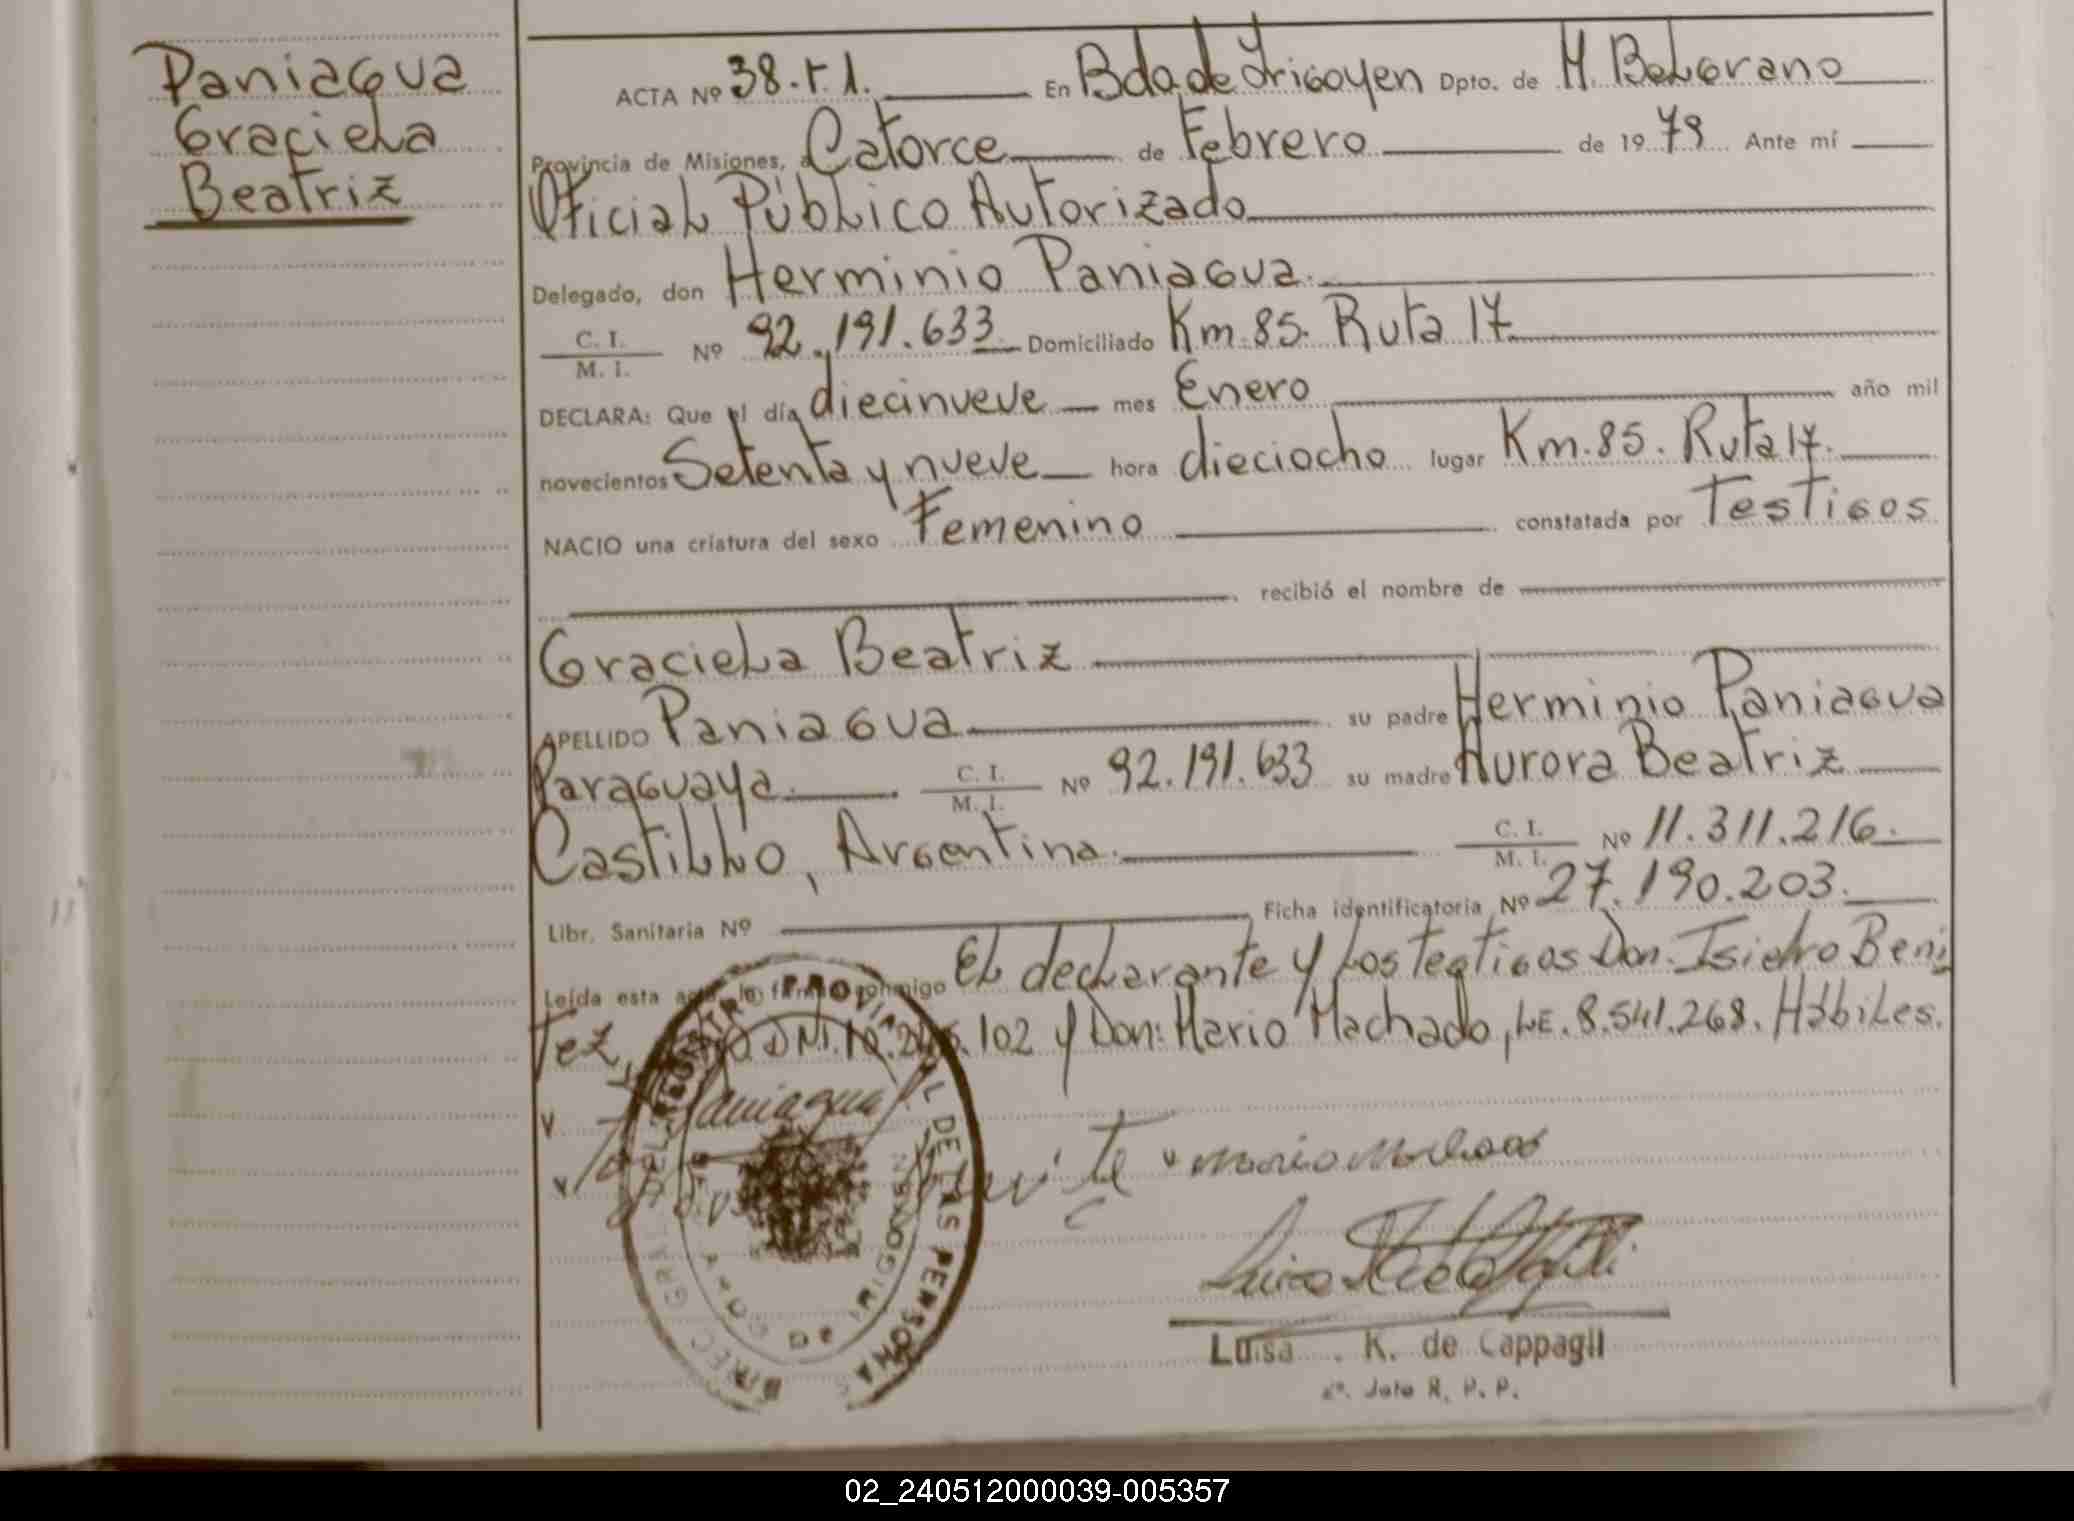 Paniagua
Graciela
Beatriz
ACTA Nº 38.t.1. En Bdo. de Irigoyen Dpto. de M. Belgrano
Provincia de Misiones, a Catorce de Febrero de 1979 Ante mí
Oficial Público Autorizado
Delegado, don Herminio Paniagua.
C. I. / M. I. Nº 92.191.633 Domiciliado Km. 85. Ruta 17
DECLARA: Que el día diecinueve mes Enero año mil
novecientos Setenta y nueve hora dieciocho lugar Km. 85. Ruta 17.
NACIO una criatura del sexo Femenino constatada por Testigos
recibió el nombre de
Graciela Beatriz
APELLIDO Paniagua su padre Herminio Paniagua
Paraguaya. C. I. / M. I. Nº 92.191.633 su madre Aurora Beatriz
Castillo, Argentina. C. I. / M. I. Nº 11.311.216.
Libr. Sanitaria Nº Ficha identificatoria Nº 27.190.203.
Leída esta acta, la firman conmigo El declarante y los testigos Don. Isidro Beni
tez, DNI. 102 y Don: Mario Machado, LE. 8.541.268. Hábiles.
Paniagua
Mario Machado
REGISTRO PROVINCIAL DE LAS PERSONAS
Luisa K. de Cappagli
2º. Jefe R. P. P.
02_240512000039-005357